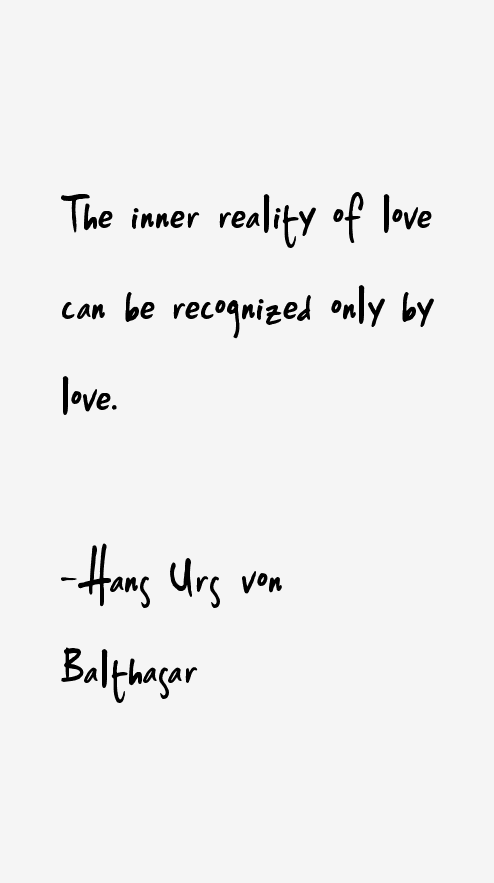 The inner reality of love
can be recognized only by
love.
-Hans Urs von
Balthasar